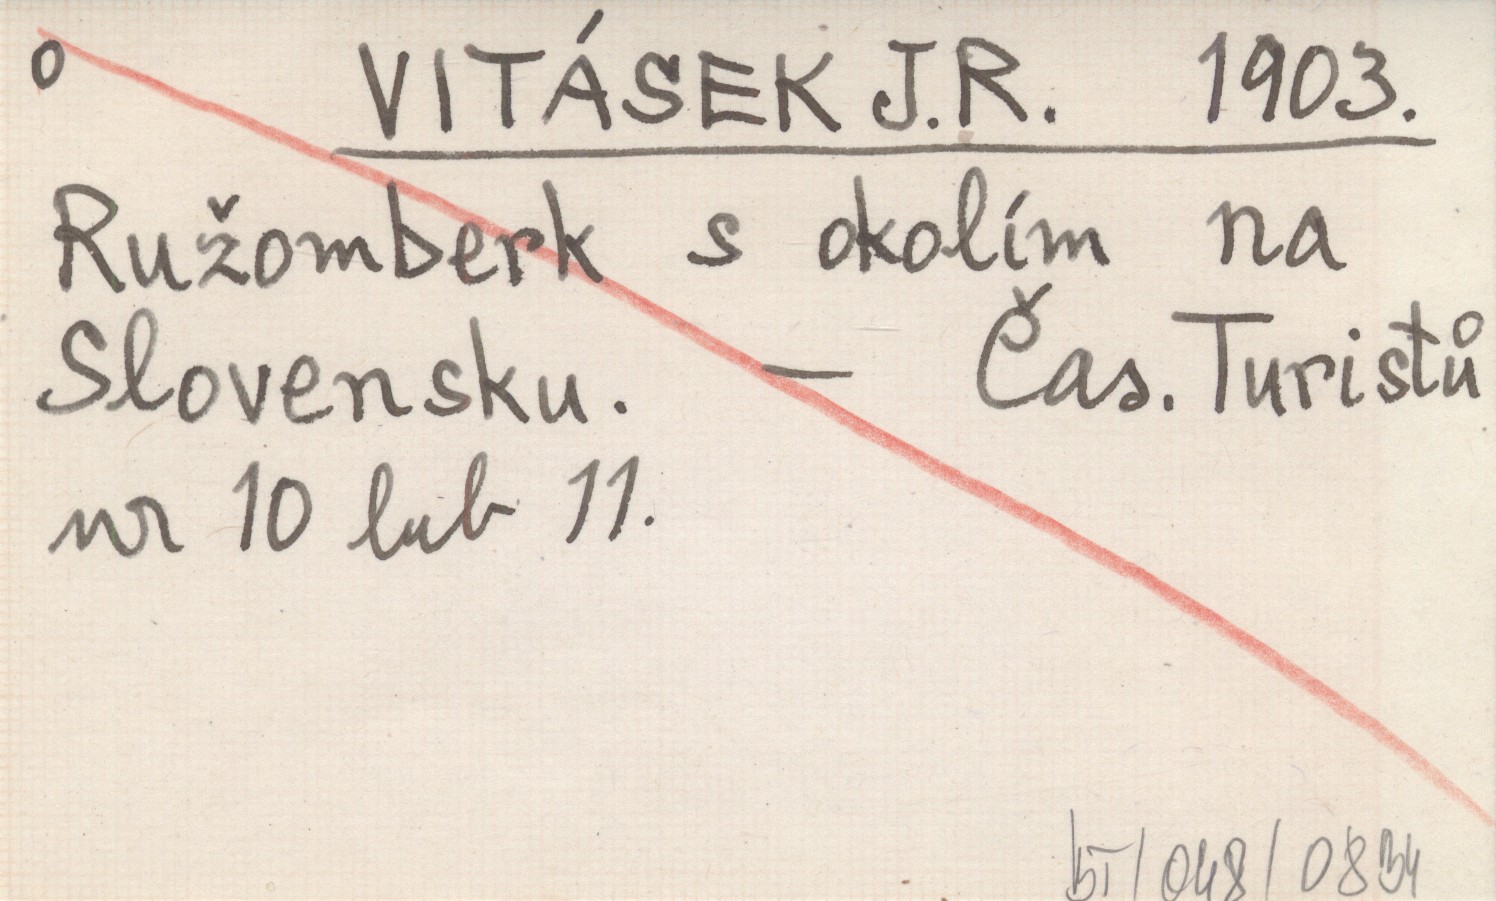 o VITÁSEK J.R. 1903.
Ružomberk s okolím na
Slovensku. — Čas. Turistů
nr 10 lub 11.
/048/0834